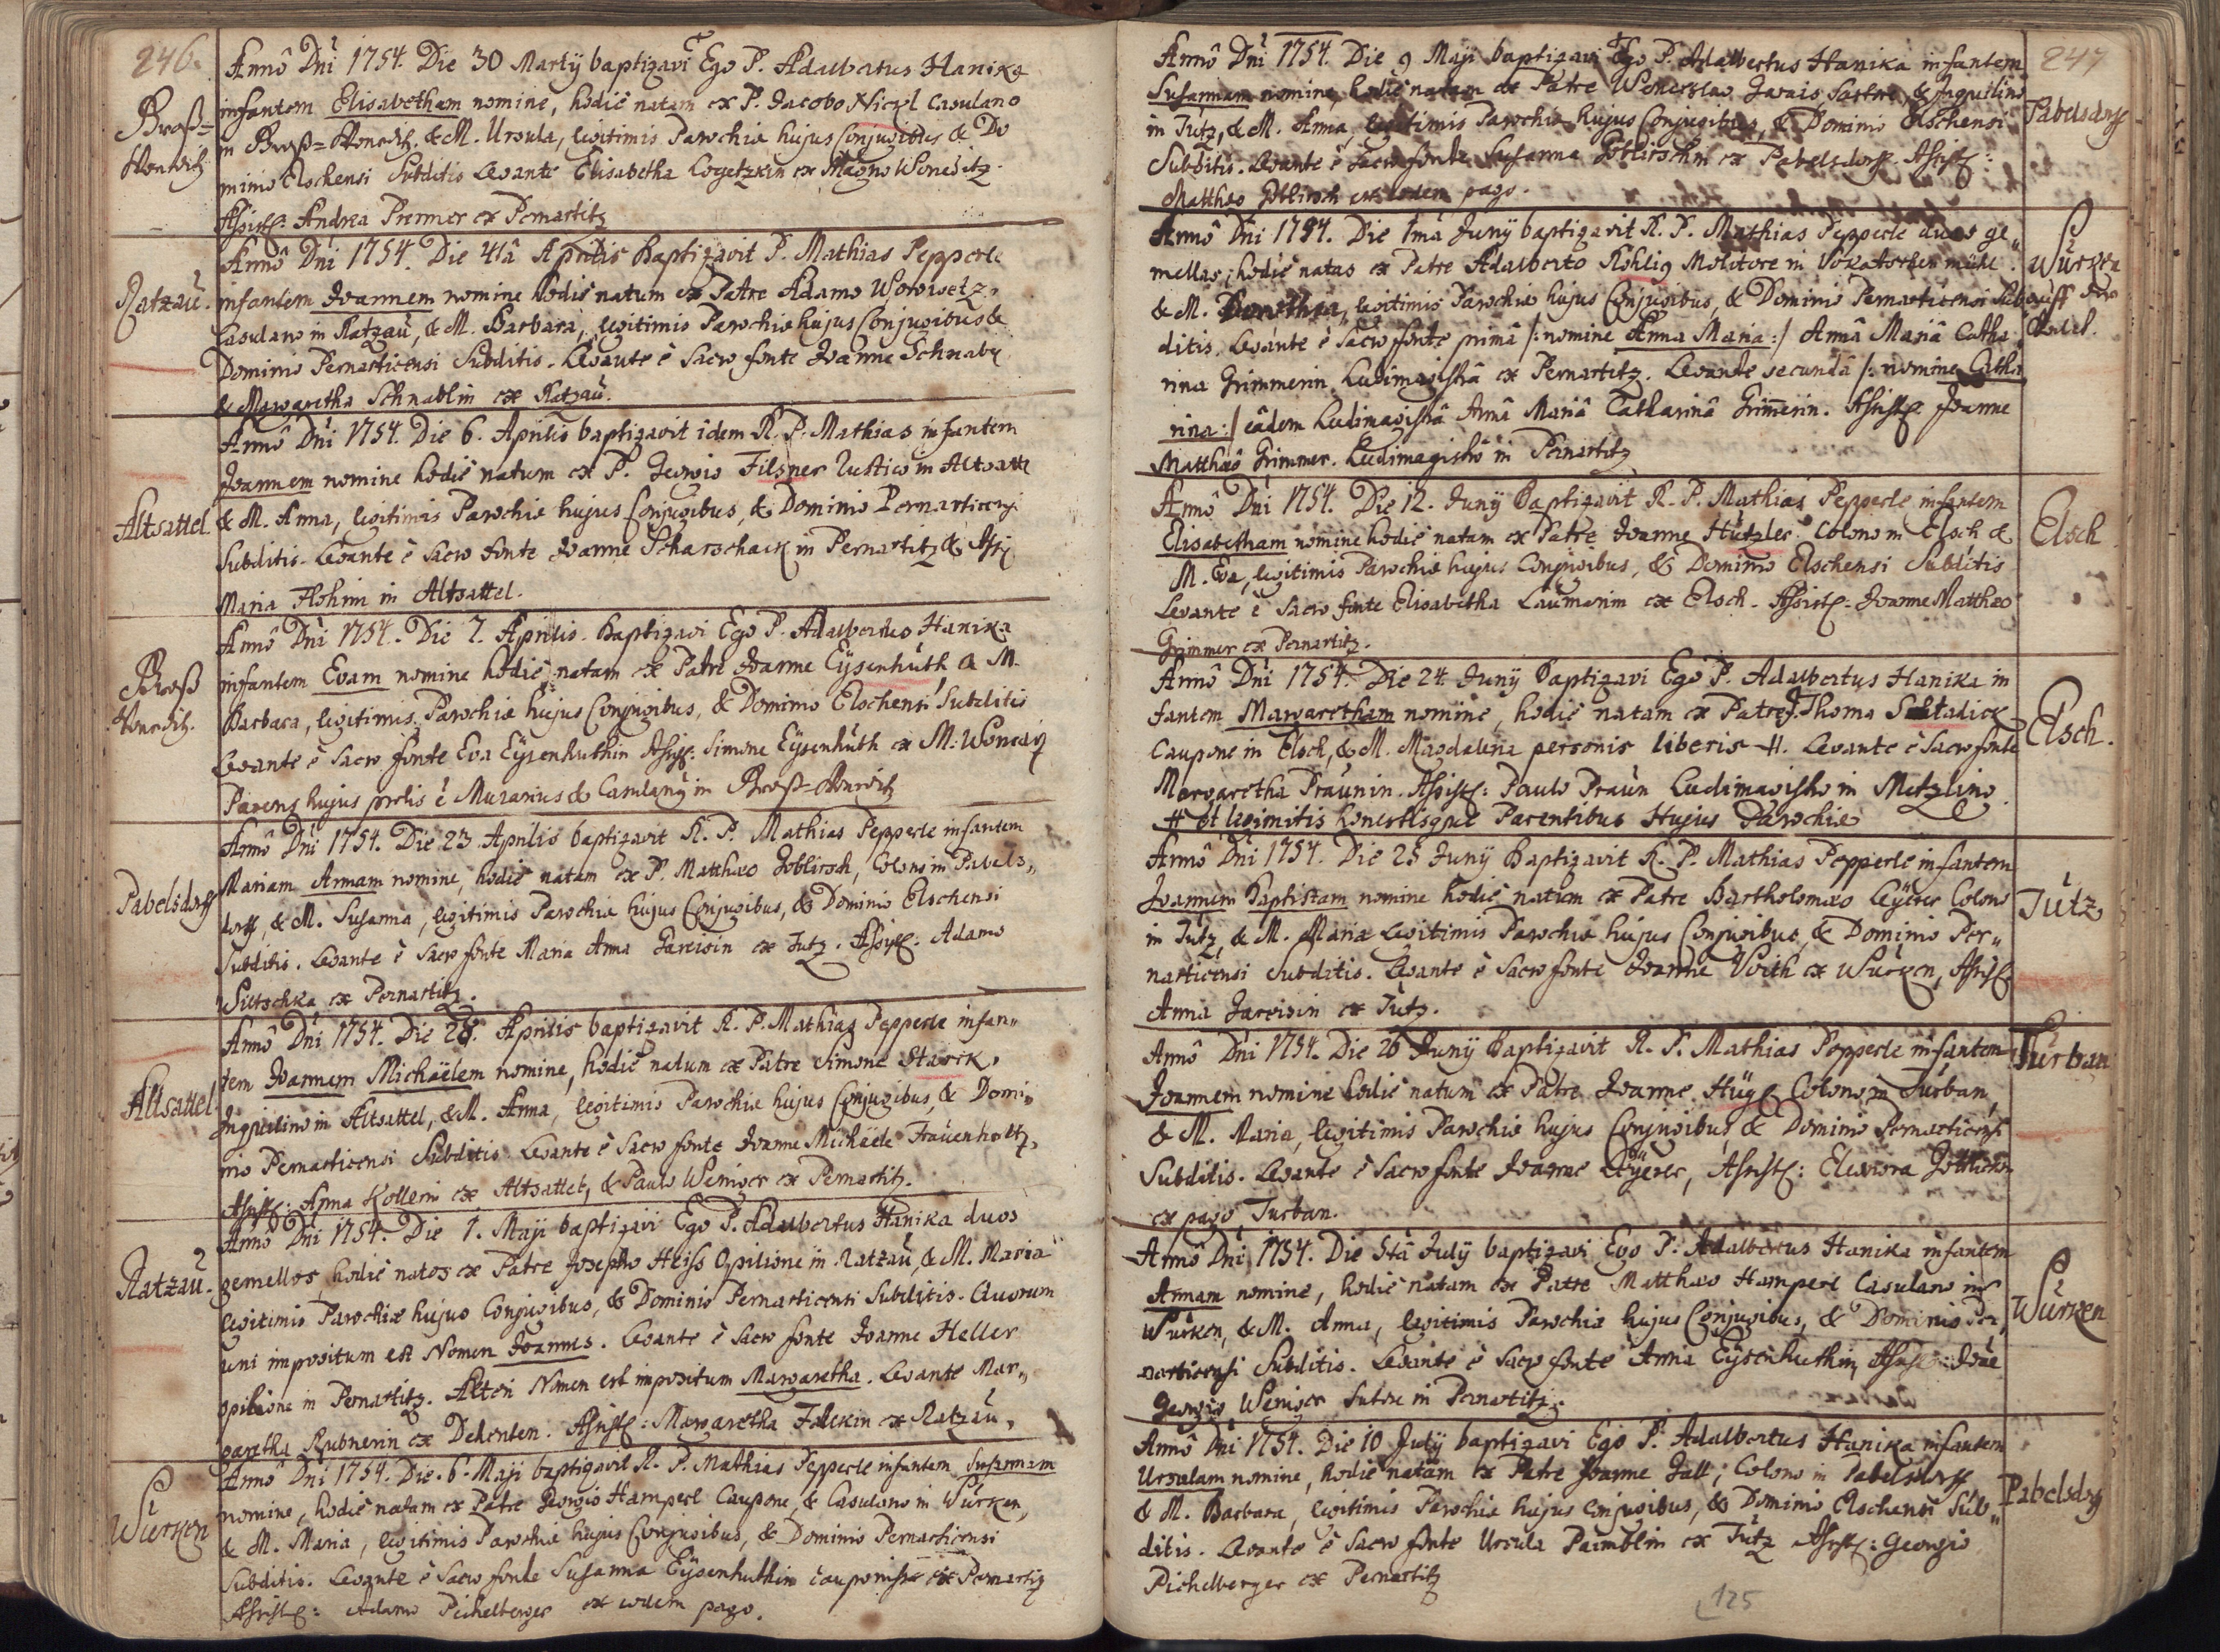 246.
Groß=
Wonetitz.
Annô Dni 1754. Die 30 Martij baptizavi Ego P. Adalbertus Hanika
infantem Elisabetham nomine, hodiè natam ex P. Jacobo Nickl Casulano
in Groß=Wonetitz. & M. Ursula, legitimis Parochiæ hujus Conjugibus & Do
minio Elschensi Subditis Levante Elisabetha ex Magno Wonetitz.
Assist: Andrea Premner ex Pernartitz
Ratzaú.
Annô Dni 1754. Die 4tâ Aprilis Baptizavit P. Mathias Pepperle
infantem Joannem nomine hodiè natum ex Patre Adamo Worwetz,
Casulano in Ratzaú, & M. Barbara, legitimis Parochiæ hujus Conjugibus &
Dominio Pernarticensi Subditis. Levante è Sacro fonte Joanne Schnabl
& Margaretha Schnablin ex Ratzaú.
Altsattel
Annô Dni 1754. Die 6. Aprilis baptizavit idem R. P. Mathias infantem
Joannem nomine hodiè natum ex P. Georgio Filsner Rustico in Altsattl
& M. Anna, legitimis Parochiæ hujus Conjugibus, & Dominio Pernarticensi
Subditis. Levante è Sacro fonte Joanne Scharschack in Pernartitz & Ass:
Maria in Altsattel.
Groß
Wonetitz.
Annô Dni 1754. Die 7. Aprilis. Baptizavi Ego P. Adalbertus Hanika
infantem Evam nomine hodiè natam ex Patre Joanne Eÿsenhúth & M.
Barbara, legitimis Parochiæ hujus Conjugibus, & Dominio Elschensi Subditis
Levante è Sacro fonte Eva Eÿsenhuthin Assist: Simone Eÿsenhúth ex M: Wonetitz
Parens hujus prolis è Murarius & Casulanus in Groß=Wonetitz
Pabelsdorff
Annô Dni 1754. Die 23. Aprilis baptizavit R. P. Mathias Pepperle infantem
Mariam Annam nomine, hodiè natam ex P. Matthæo Goblirsch, Colono in Pabels„
dorff, & M. Susanna, legitimis Parochiæ hujus Conjugibus, & Dominio Elschensi
Subditis. Levante è Sacro fonte Maria Anna ex Jutz. Assist: Adamo
Wittschka ex Pernartitz.
Altsattel
Annô Dni 1754. Die 28. Aprilis baptizavit R. P. Mathias Pepperle infan„
tem Joannem Michaëlem nomine, hodiè natum ex Patre Simone Starck,
Inquilino in Altsattel, & M. Anna, legitimis Parochiæ hujus Conjugibus, & Domi„
nio Pernarticensi Subditis Levante è Sacro fonte Joanne Michaële Fraúenholtz,
Assist: Anna Kollerin ex Altsattel, & Paulo Weniger ex Pernartitz.
Ratzaú.
Annô Dni 1754. Die 1. Maji baptizavi Ego P. Adalbertus Hanika duos
gemellos, hodiè natos ex Patre Josepho Heiss Opilione in Ratzaú, & M. Maria
legitimis Parochiæ hujus Conjugibus, & Dominio Pernarticensi Subditis. Quorum
uni impositum est Nomen Joannes. Levante è Sacro fonte Joanne Heller
opilione in Pernartitz. Alteri Nomen est impositum Margaretha. Levante Mar„
garetha Rubnerin ex Dehenten. Assist: Margaretha Falckin ex Ratzaú.
Würken
Annô Dni 1754. Die. 6. Maji baptizavit R. P. Mathias Pepperle infantem Susannam
nomine, hodiè natam ex Patre Georgio Hamperl Caupone, & Casulano in Würken,
& M. Maria, legitimis Parochiæ hujus Conjugibus, & Dominio Pernarticensi
Subditis. Levante è Sacro fonte Susanna Eÿsenhuthin ex Pernartitz
Assist: Adamo Pichelberger ex eodem pago.
247
Pabelsdorff
Annô Dni 1754. Die 9 Maji baptizavi Ego P. Adalbertus Hanika infantem
Susannam nomine, hodiè natam ex Patre Wenceslao Sartore, & Inquilino
in Jutz, & M. Anna, legitimis Parochiæ hujus Conjugibus, & Dominio Elschensi
Subditis. Levante è Sacro fonte Susanna Goblirschin ex Pabelsdorff. Assist:
Matthæo Goblirsch ex eodem pago.
Würken
auff der
Annô Dni 1754. Die 1mâ Junij baptizavit R. P. Mathias Pepperle duas ge„
mellas, hodiè natas ex Patre Adalberto Röhlig Molitore in
& M. Dorothea, legitimis Parochiæ hujus Conjugibus, & Dominio Pernarticensi Sub
ditis. Levante è Sacro fonte primâ /: nomine Anna Maria :/ Annâ Mariâ Catha„
rina Grimmerin Ludimagistrâ ex Pernartitz. Levante secundâ /: nomine Catha
rina :/ eâdem Ludimagistrâ Annâ Mariâ Catharinâ Grimerin. Assist Joanne
Matthæo Grimmer. Ludimagistro in Pernartitz
Elsch
Annô Dni 1754. Die 12. Junij Baptizavit R. P. Mathias Pepperle infantem
Elisabetham nomine hodiè natam ex Patre Joanne Hützler Colono in Elsch &
M. Eva, legitimis Parochiæ hujus Conjugibus, & Dominio Elschensi Subditis
Levante è Sacro fonte Elisabetha Laúmerin ex Elsch. Assist: Joanne Matthæo
Grimmer ex Pernartitz.
Elsch.
Annô Dni 1754. Die 24. Junij Baptizavi Ego P. Adalbertus Hanika in
fantem Margaretham nomine, hodiè natam ex Patre Thoma
Caupone in Elsch, & M. Magdalena personis liberis #. Levante è Sacro fonte
Margaretha Praúnin. Assist: Paulo Praún Ludimagistro in Metzling
# et legimitis honestisque Parentibus Hujus Parochiæ
Jútz
Annô Dni 1754. Die 25 Junij Baptizavit R. P. Mathias Pepperle infantem
Joannem Baptistam nomine hodiè natum ex Patre Bartholomæo Leÿerer Colono
in Jutz, & M. Maria legitimis Parochiæ hujus Conjugibus, & Dominio Per„
narticensi Subditis. Levante è Sacro fonte Joanne Voith ex Würken, Assist
Anna ex Jutz.
Turban
Annô Dni 1754. Die 26 Junij Baptizavit R. P. Mathias Pepperle infantem
Joannem nomine hodiè natum ex Patre Joanne Colono in Túrban,
& M. Maria, legitimis Parochiæ hujus Conjugibus & Dominio Pernarticensi
Subditis. Levante è Sacro fonte Joanne Leÿerer, Assist: Eleonora
ex pago Turban.
Würken
Annô Dni 1754. Die 5tâ Julij baptizavi Ego P. Adalbertus Hanika infantem
Annam nomine, hodiè natam ex Patre Matthæo Hamperl Casulano in
Würken, & M. Anna, legitimis Parochiæ hujus Conjugibus, & Dominio Per„
narticensi Subditis. Levante è Sacro fonte Anna Eÿsenhuthin, Assist: Joãe
Georgio Weniger Sutore in Pernartitz.
Pabelsdorff
Annô Dni 1754. Die 10 Julij baptizavi Ego P. Adalbertus Hanika infantem
Ursulam nomine, hodiè natam ex Patre Joanne Colono in Pabelsdorff
& M. Barbara, legitimis Parochiæ hujus Conjugibus, & Dominio Elschensi Sub„
ditis. Levante è Sacro fonte Ursula Paimblin ex Jutz Assist: Georgio
Pichelberger ex Pernartitz
125